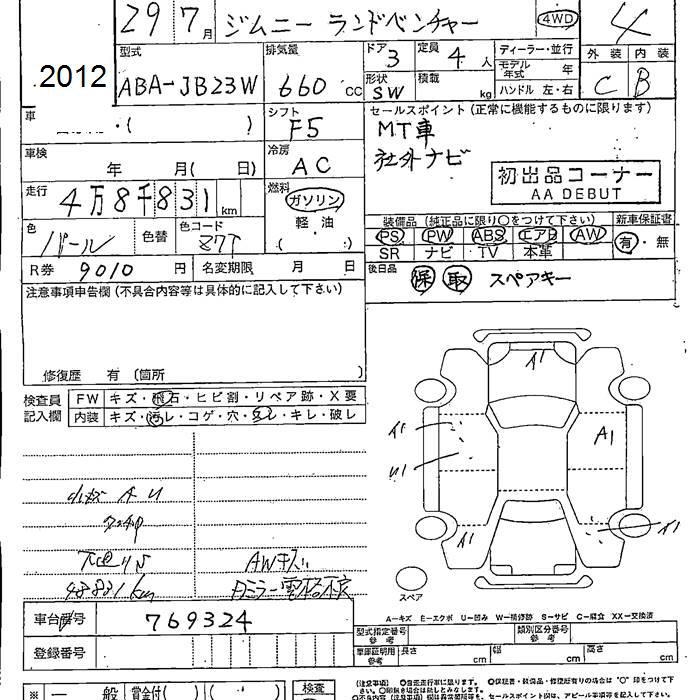 29 7月 ジムニー ランドベンチャー 4WD 4
2012
型式 ABA-JB23W
排気量 660 cc
ドア 3
定員 4 人
形状 SW
積載 kg
ディーラー・並行
モデル年式 年
ハンドル 左・右
外装 内装
C B
車 ・( )
シフト F5
車検 年 月( 日)
冷房 AC
走行 4万8千831 km
燃料 ガソリン
軽・油
( )
色 パール 色替 色コード Z7T
R券 9010 円 名変期限 月 日
セールスポイント(正常に機能するものに限ります)
MT車
社外ナビ
初出品コーナー
AA DEBUT
装備品(純正品に限り○をつけて下さい) 新車保証書
PS PW ABS エアB AW 有・無
SR ナビ TV 本革
後日品 保 取 スペアキー
注意事項申告欄(不具合内容等は具体的に記入して下さい)
修復歴 有(箇所 )
検査員記入欄
FW キズ・飛石・ヒビ割・リペア跡・X要
内装 キズ・汚レ・コゲ・穴・スレ・キレ・破レ
小キズ A U
下回りS
48831km
AWキズ
Dミラー電格不良
A1
スペア
A-キズ E-エクボ U-凹み W-補修跡 S-サビ C-腐食 XX-交換済
車台番号 769324
登録番号
型式指定番号 参考
類別区分番号 参考
車庫証明用 参考 長さ cm 幅 cm 高さ cm
※ 一 般 賞金付( ) ( ) 検査
(注意事項)